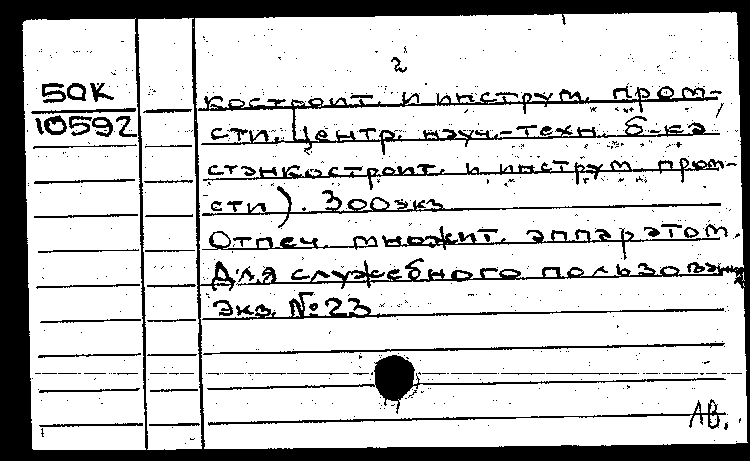 2
50К
10592
костроит. и инструм. пром-
сти. Центр. науч.-техн. б-ка
станкострoит. и инструм. пром-
сти). 300экз
Отпеч. множит. аппаратом.
Для служебного пользован
Экз. №23
АВ.